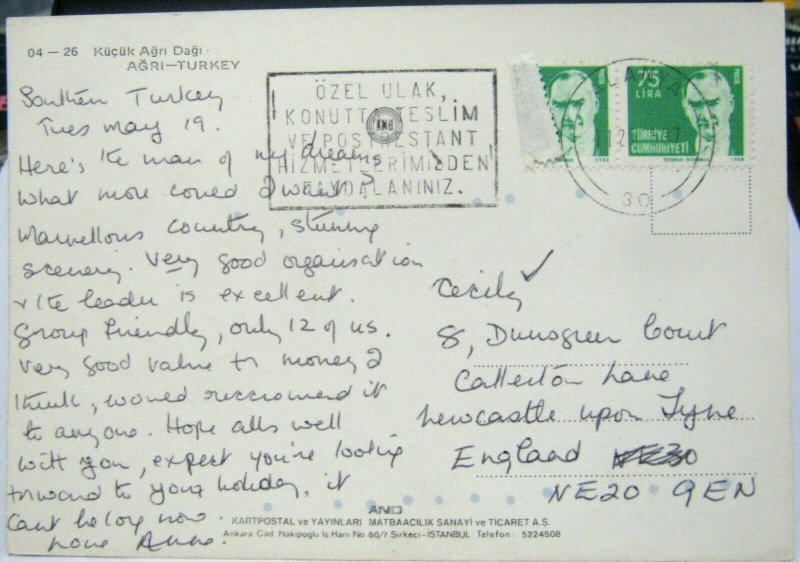 04 – 26 Küçük Ağrı Dağı
AĞRI–TURKEY
Southern Turkey
Tues May 19.
Here's the man of my dreams
what more could I want?
Marvellous country, stunning
scenery. Very good organisation
+ the leader is excellent.
Group friendly, only 12 of us.
Very good value for money I
think, would reccomend it
to anyone. Hope alls well
with you, expect you're looking
forward to your holiday, it
cant be long now.
Love Anne.
ÖZEL ULAK,
KONUTTA TESLİM
VE POSTRESTANT
HİZMETLERİMİZDEN
FAYDALANINIZ.
75
LIRA
TÜRKİYE
CUMHURİYETİ
30
Cecily
8, Dunsgreen Court
Callerton Lane
Newcastle upon Tyne
England NE30
NE20 9EN
AND
KARTPOSTAL ve YAYINLARI MATBAACILIK SANAYİ ve TİCARET A.Ş.
Ankara Cad. Nakipoglu İş Hanı No 60/7 Sirkeci–İSTANBUL Telefon: 5224508